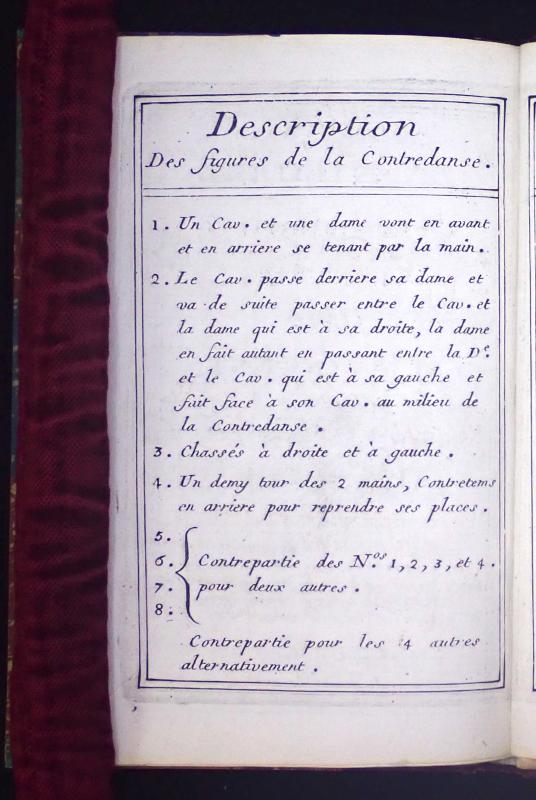 Description
Des figures de la Contredanse.
1. Un Cav. et une dame vont en avant
et en arriere se tenant par la main.
2. Le Cav. passe derriere sa dame et
va de suite passer entre le Cav. et
la dame qui est à sa droite, la dame
en fait autant en passant entre la De.
et le Cav. qui est à sa gauche et
fait face à son Cav. au milieu de
la Contredanse.
3. Chassés à droite et à gauche.
4. Un demy tour des 2 mains, Contretems
en arriere pour reprendre ses places.
5.
6. Contrepartie des Nos. 1, 2, 3, et 4.
7. pour deux autres.
8.
Contrepartie pour les 4 autres
alternativement.